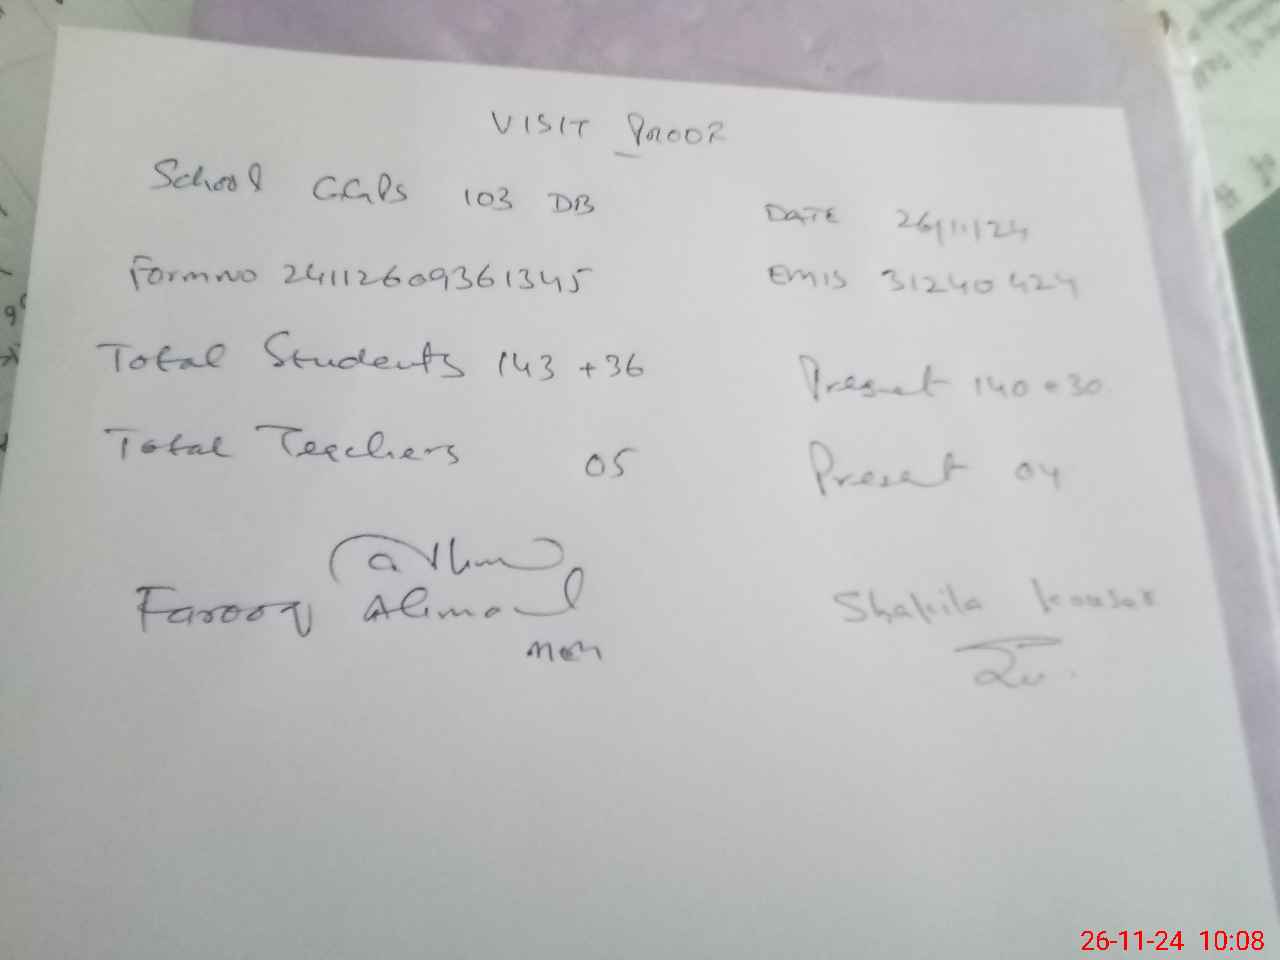 VISIT PROOF
School GGPS 103 DB
DATE 26/11/24
Form no 24112609361345
EMIS 31240424
Total Students 143 +36
Present 140 + 30
Total Teachers 05
Present 04
Farooq Ahmad
Shakila Kousar
26-11-24 10:08